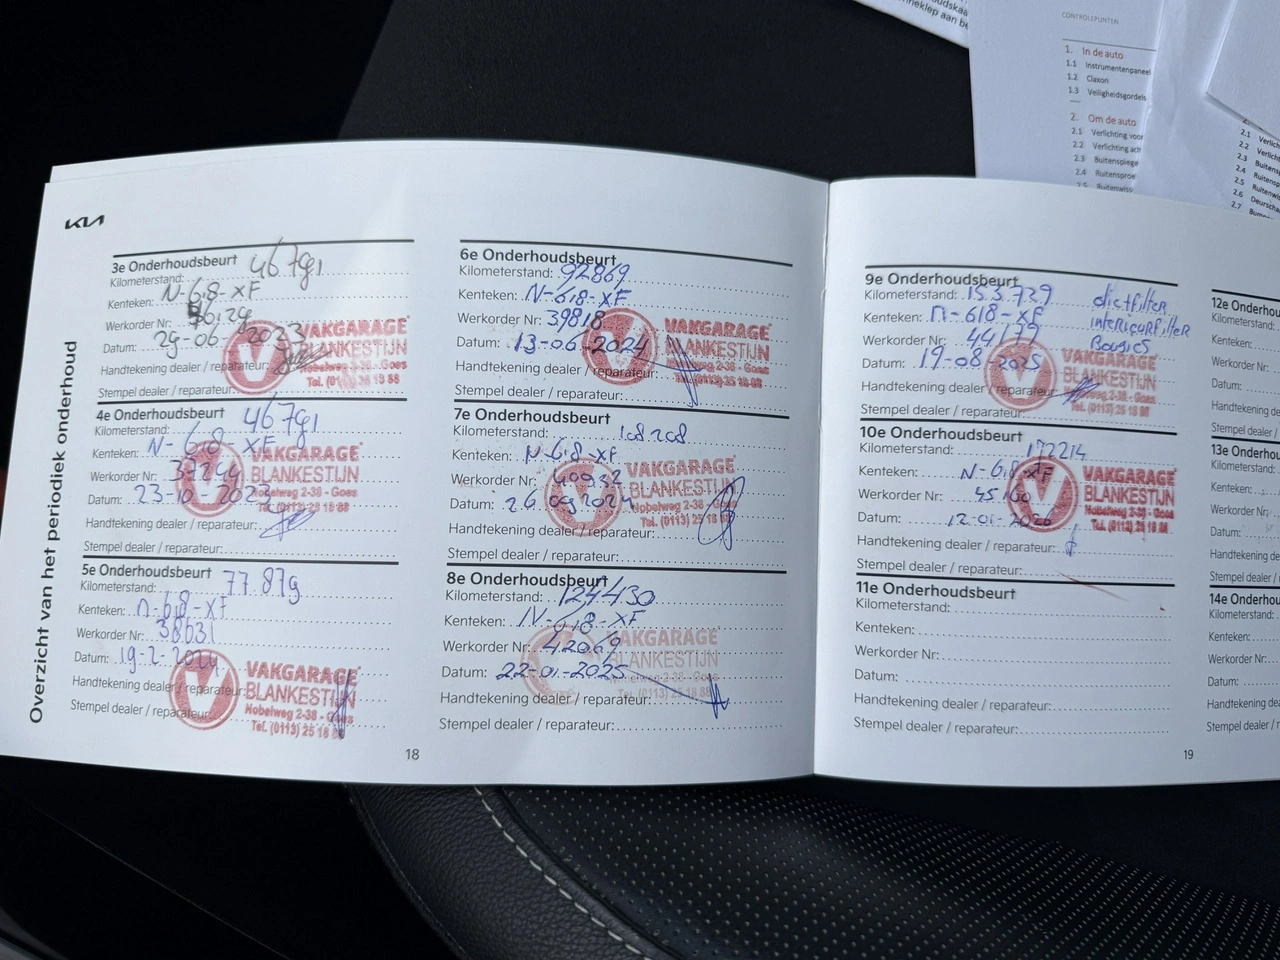 KIA
Overzicht van het periodiek onderhoud
3e Onderhoudsbeurt 46791
Kilometerstand:
Kenteken: N-618-XF
Werkorder Nr: 36129
Datum: 29-06-2023
Handtekening dealer / reparateur:
Stempel dealer / reparateur:
VAKGARAGE
BLANKESTIJN
Nobelweg 2-38 - Goes
Tel. (0113) 25 18 88
4e Onderhoudsbeurt 46791
Kilometerstand:
Kenteken: N-618-XF
Werkorder Nr: 37244
Datum: 23-10-202
Handtekening dealer / reparateur:
Stempel dealer / reparateur:
VAKGARAGE
BLANKESTIJN
Nobelweg 2-38 - Goes
Tel. (0113) 25 18 88
5e Onderhoudsbeurt 77.879
Kilometerstand:
Kenteken: N-618-XF
Werkorder Nr: 38631
Datum: 19-2-2024
Handtekening dealer / reparateur:
Stempel dealer / reparateur:
VAKGARAGE
BLANKESTIJN
Nobelweg 2-38 - Goes
Tel. (0113) 25 18 88
18
6e Onderhoudsbeurt
Kilometerstand: 92869
Kenteken: N-618-XF
Werkorder Nr: 39818
Datum: 13-06-2024
Handtekening dealer / reparateur:
Stempel dealer / reparateur:
VAKGARAGE
BLANKESTIJN
Nobelweg 2-38 - Goes
Tel. (0113) 25 18 88
7e Onderhoudsbeurt
Kilometerstand: 108208
Kenteken: N-618-XF
Werkorder Nr: 40932
Datum: 26-09-2024
Handtekening dealer / reparateur:
Stempel dealer / reparateur:
VAKGARAGE
BLANKESTIJN
Nobelweg 2-38 - Goes
Tel. (0113) 25 18 88
8e Onderhoudsbeurt
Kilometerstand: 124430
Kenteken: N-618-XF
Werkorder Nr: 42069
Datum: 22-01-2025
Handtekening dealer / reparateur:
Stempel dealer / reparateur:
VAKGARAGE
BLANKESTIJN
Nobelweg 2-38 - Goes
Tel. (0113) 25 18 88
9e Onderhoudsbeurt
Kilometerstand: 153.729
Kenteken: N-618-XF
Werkorder Nr: 44177
Datum: 19-08-2025
Handtekening dealer / reparateur:
Stempel dealer / reparateur:
interieurfilter
Bougies
VAKGARAGE
BLANKESTIJN
Nobelweg 2-38 - Goes
Tel. (0113) 25 18 88
10e Onderhoudsbeurt
Kilometerstand: 172214
Kenteken: N-618-XF
Werkorder Nr:
Datum: 12-01-2026
Handtekening dealer / reparateur:
Stempel dealer / reparateur:
VAKGARAGE
BLANKESTIJN
Nobelweg 2-38 - Goes
Tel. (0113) 25 18 88
11e Onderhoudsbeurt
Kilometerstand:
Kenteken:
Werkorder Nr:
Datum:
Handtekening dealer / reparateur:
Stempel dealer / reparateur:
19
12e Onderh
Kilometerstand:
Kenteken:
Werkorder Nr:
Datum:
Handtekening d
Stempel dealer
13e Onderh
Kilometerstand
Kenteken:
Werkorder Nr:
Datum:
Handtekening de
Stempel dealer /
14e Onderh
Kilometerstand:
Kenteken:
Werkorder Nr:
Datum:
Handtekening dea
Stempel dealer / re
CONTROLEPUNTEN
1. In de auto
1.1 Instrumentenpaneel
1.2 Claxon
1.3 Veiligheidsgordels
2. Om de auto
2.1 Verlichting voor
2.2 Verlichting ach
2.3 Buitenspiege
2.4 Ruitensproe
2.5 Ruitenwiss
2.
2.1 Verlich
2.2 Verlic
2.3 Buiten
2.4 Ruitens
2.5 Ruitenwis
2.6 Deurscha
2.7 Bump